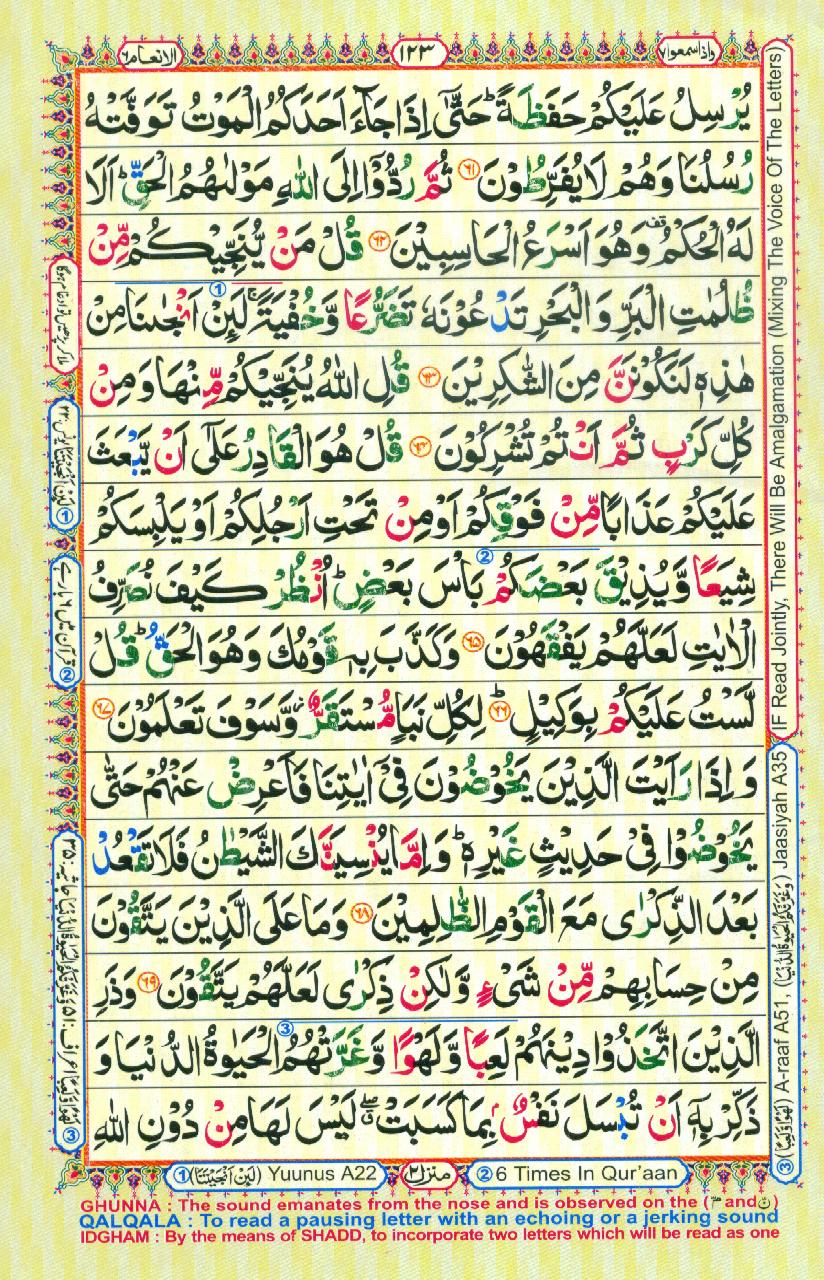 واذاسمعوا٧
١٢٣
الانعام٦
يُرْسِلُ عَلَيْكُمْ حَفَظَةً ؕ حَتّٰۤى اِذَا جَآءَ اَحَدَكُمُ الْمَوْتُ تَوَفَّتْهُ
رُسُلُنَا وَهُمْ لَا يُفَرِّطُوْنَ ﴿٦١﴾ ثُمَّ رُدُّوْۤا اِلَى اللّٰهِ مَوْلٰىهُمُ الْحَقِّ ؕ اَلَا
لَهُ الْحُكْمُ وقف وَهُوَ اَسْرَعُ الْحَاسِبِيْنَ ﴿٦٢﴾ قُلْ مَنْ يُّنَجِّيْكُمْ مِّنْ
ظُلُمٰتِ الْبَرِّ وَ الْبَحْرِ تَدْعُوْنَهٗ تَضَرُّعًا وَّخُفْيَةً ۚ لَىِٕنْ اَنْجٰىنَا مِنْ
هٰذِهٖ لَنَكُوْنَنَّ مِنَ الشّٰكِرِيْنَ ﴿٦٣﴾ قُلِ اللّٰهُ يُنَجِّيْكُمْ مِّنْهَا وَمِنْ
كُلِّ كَرْبٍ ثُمَّ اَنْتُمْ تُشْرِكُوْنَ ﴿٦٤﴾ قُلْ هُوَ الْقَادِرُ عَلٰۤى اَنْ يَّبْعَثَ
عَلَيْكُمْ عَذَابًا مِّنْ فَوْقِكُمْ اَوْ مِنْ تَحْتِ اَرْجُلِكُمْ اَوْ يَلْبِسَكُمْ
شِيَعًا وَّيُذِيْقَ بَعْضَكُمْ بَاْسَ بَعْضٍ ؕ اُنْظُرْ كَيْفَ نُصَرِّفُ
الْاٰيٰتِ لَعَلَّهُمْ يَفْقَهُوْنَ ﴿٦٥﴾ وَكَذَّبَ بِهٖ قَوْمُكَ وَهُوَ الْحَقُّ ؕ قُلْ
لَّسْتُ عَلَيْكُمْ بِوَكِيْلٍ ؕ ﴿٦٦﴾ لِكُلِّ نَبَاٍ مُّسْتَقَرٌّ ؗ وَّسَوْفَ تَعْلَمُوْنَ ﴿٦٧﴾
وَ اِذَا رَاَيْتَ الَّذِيْنَ يَخُوْضُوْنَ فِيْۤ اٰيٰتِنَا فَاَعْرِضْ عَنْهُمْ حَتّٰى
يَخُوْضُوْا فِيْ حَدِيْثٍ غَيْرِهٖ ؕ وَ اِمَّا يُنْسِيَنَّكَ الشَّيْطٰنُ فَلَا تَقْعُدْ
بَعْدَ الذِّكْرٰى مَعَ الْقَوْمِ الظّٰلِمِيْنَ ﴿٦٨﴾ وَمَا عَلَى الَّذِيْنَ يَتَّقُوْنَ
مِنْ حِسَابِهِمْ مِّنْ شَيْءٍ وَّلٰكِنْ ذِكْرٰى لَعَلَّهُمْ يَتَّقُوْنَ ﴿٦٩﴾ وَذَرِ
الَّذِيْنَ اتَّخَذُوْا دِيْنَهُمْ لَعِبًا وَّلَهْوًا وَّغَرَّتْهُمُ الْحَيٰوةُ الدُّنْيَا وَ
ذَكِّرْ بِهٖۤ اَنْ تُبْسَلَ نَفْسٌۢ بِمَا كَسَبَتْ ۖ لَيْسَ لَهَا مِنْ دُوْنِ اللّٰهِ
(IF Read Jointly, There Will Be Amalgamation (Mixing The Voice Of The Letters)
③ (لَهْوًا وَّلَعِبًا) A-raaf A51, (وَغَرَّتْكُمُ الْحَيٰوةُ الدُّنْيَا) Jaasiyah A35
① لَىِٕنْ اَنْجَيْتَنَا یونس:٢٢
② قرآن میں ٦ بار ہے
③ لَهْوًا وَّلَعِبًا اعراف:٥١ وَغَرَّتْكُمُ الْحَيٰوةُ الدُّنْيَا جاثیہ:٣٥
① (لَىِٕنْ اَنْجَيْتَنَا) Yuunus A22
منزل٢
② 6 Times In Qur'aan
GHUNNA : The sound emanates from the nose and is observed on the (مّ and نّ)
QALQALA : To read a pausing letter with an echoing or a jerking sound
IDGHAM : By the means of SHADD, to incorporate two letters which will be read as one